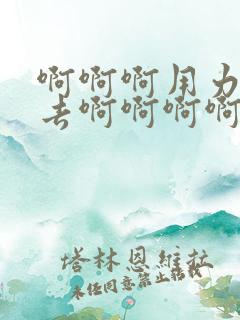 啊啊啊用力
去啊啊啊啊
塔林恩維拉
未经同意禁止转载